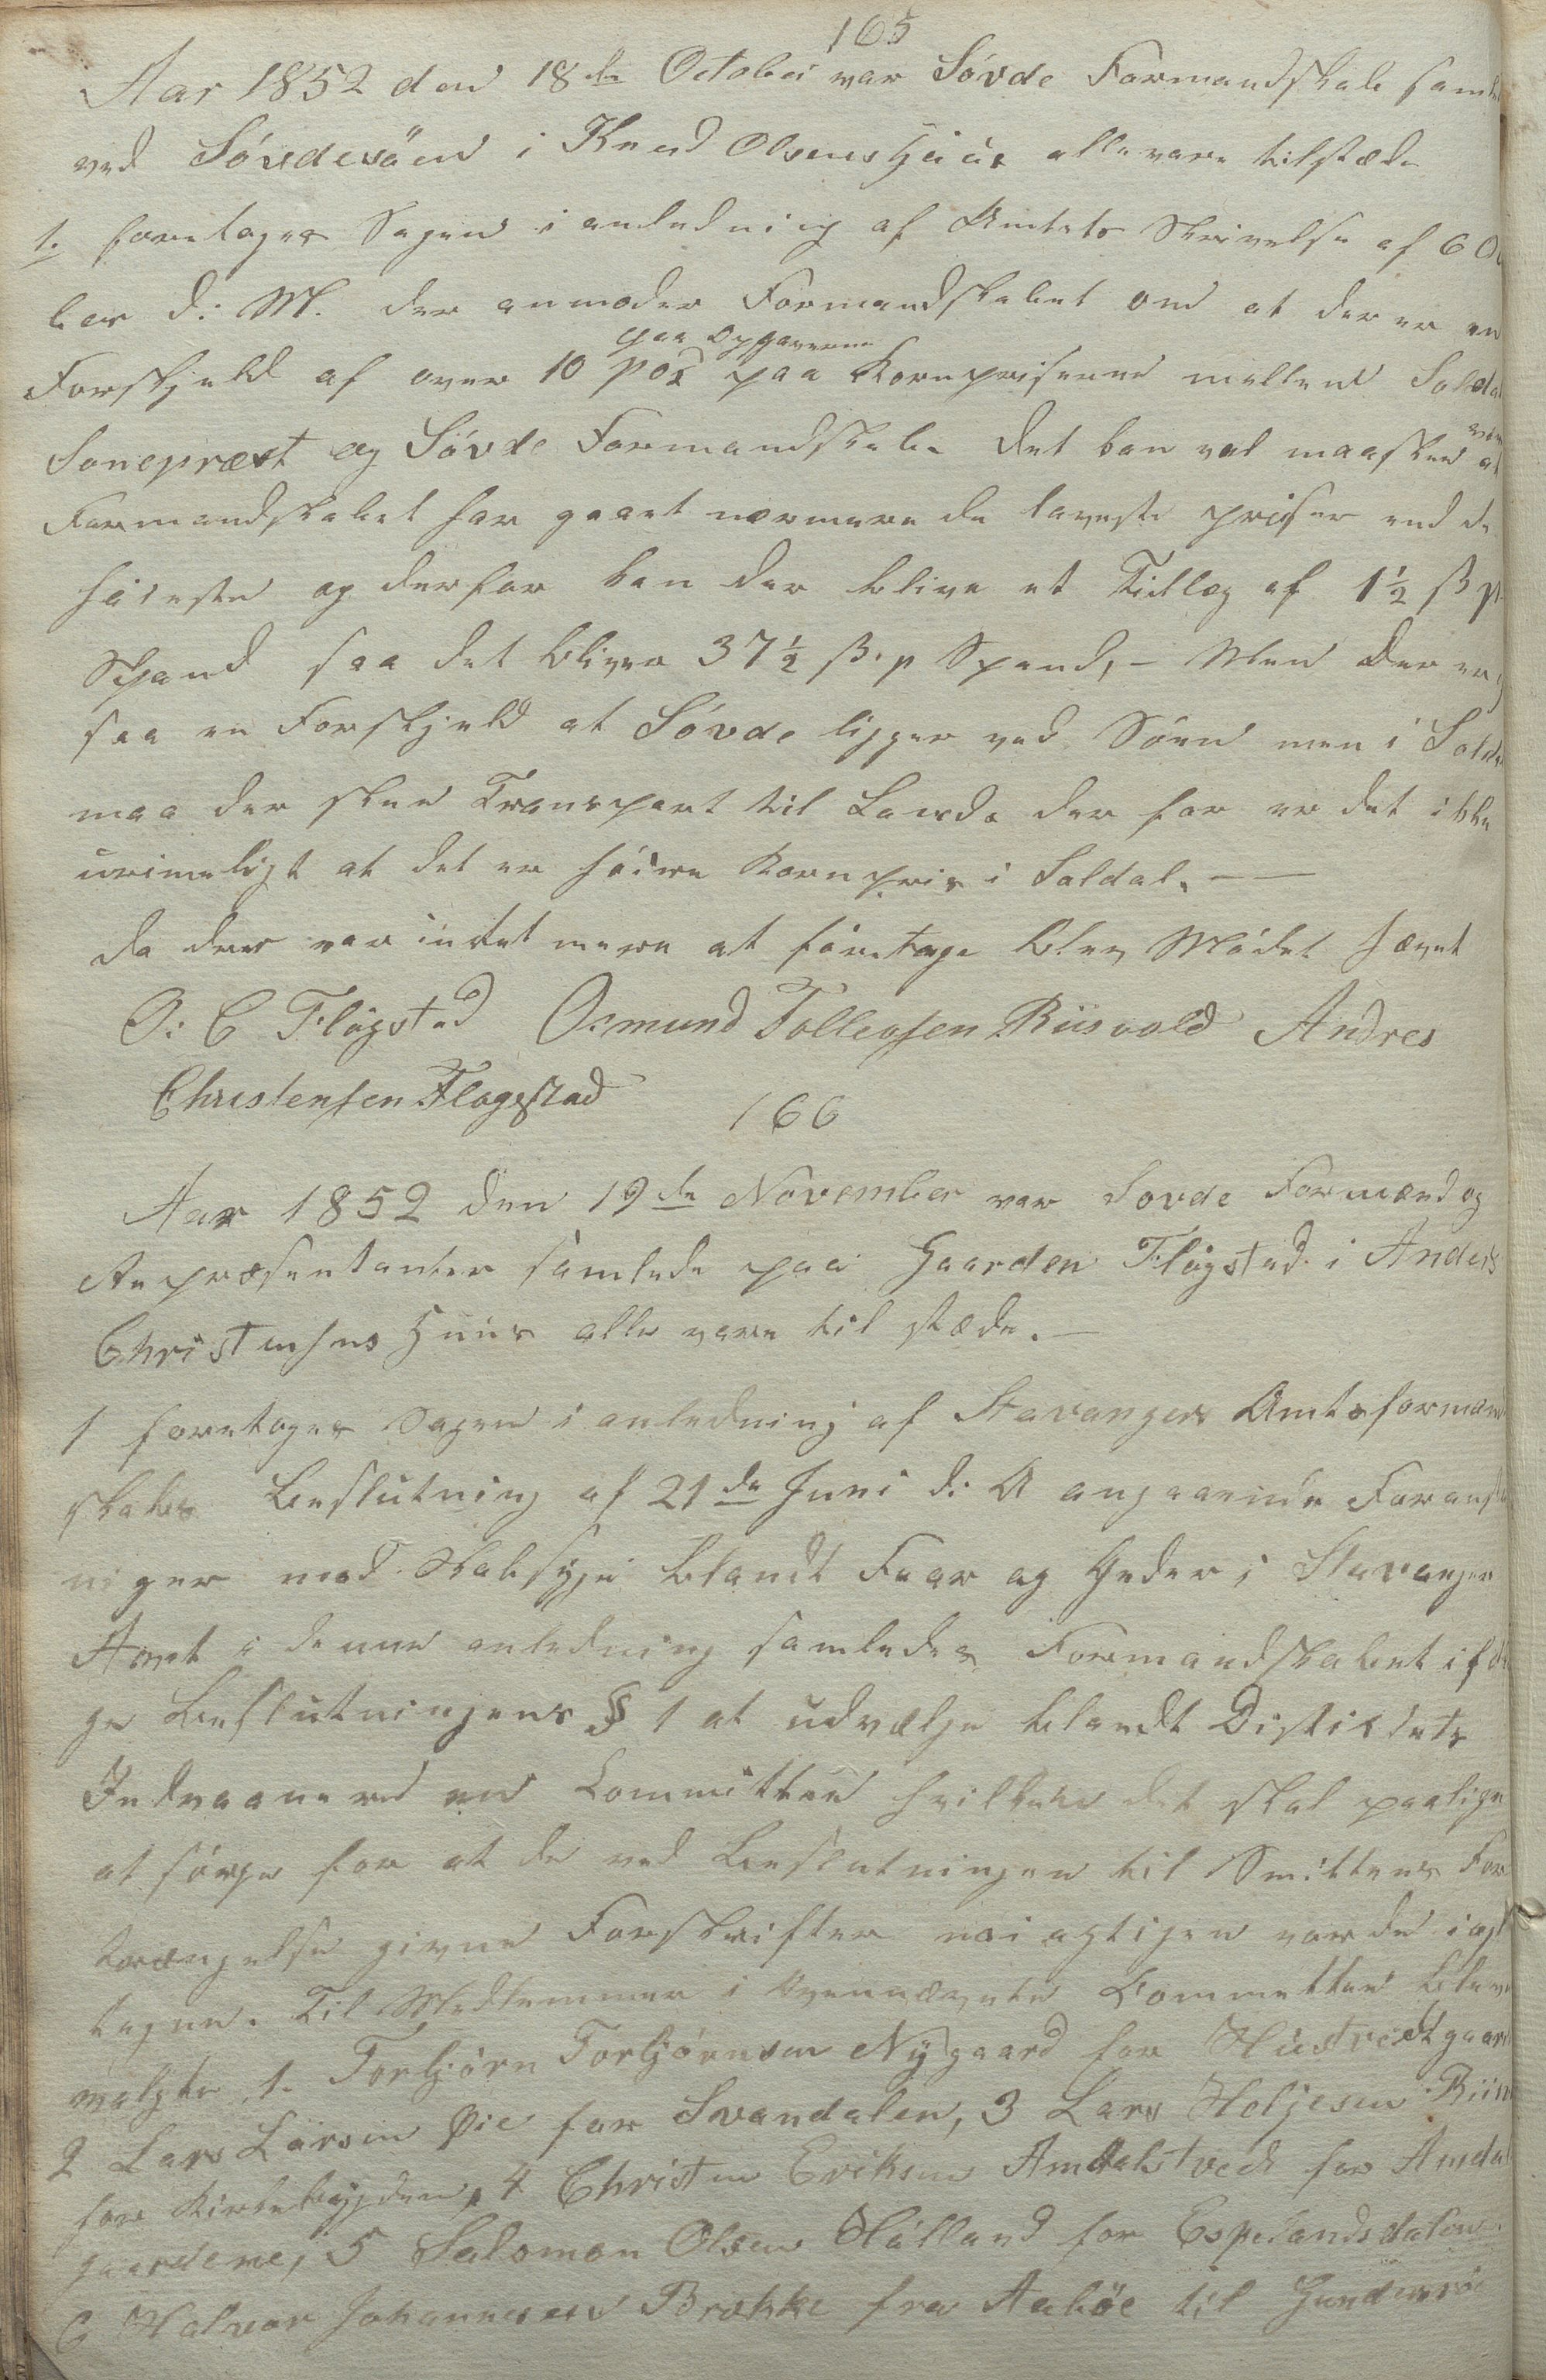 165
Aar 1852 den 18de October var Søvde Formandskab samlet
ved Søvdesøen i Knud Olsens Huus alle vare tilstæde
1. foretages Sagen i anledning af Amtets Skrivelse af 6 Octo
ber d: M. der anmoder Formandskabet om at der er en
paa Opgaverne
Forskjeld af over 10 pos paa Kornpriserne mellem Soldal
Sonepræst og Søvde Formandskab. Det kan vel maaskee være at
Formandskabet har gaaet nærmere de laveste priser end de
høieste og derfor kan der blive et Tillæg af 1½ ß p
Spand saa det bliver 37½ ß. p Spand, – Men der er og
saa en Forskjeld at Søvde ligger ved Søen men i Soldal
maa der skee Transport til Lands der for er det ikke
urimeligt at det er høiere Kornpris i Soldal. — —
da der var intet mere at foretage blev Mødet hævet
O: C Flågstad Osmund Tollevsen Riisvold Andres
Christensen Flogstad
166
Aar 1852 den 19de November var Sovde Formænd og
Repræsentanter samlede paa Gaarden Flågstad i Anders
Christensens Huus alle vare til stæde. —
1 foretages Sagen i anledning af Stavangers Amtsformand
skabs Beslutning af 21de Juni d: A angaaende Foranst
niger mod Skabsyge blandt Faar og Geder i Stavanger
Amt i denne anledning samledes Formandskabet iføl
ge Beslutningens § 1 at udvælge blandt Districtets
Indvaanere en Committee hvilken det skal paaligge
at sørge for at de ved Beslutningen til Smittens For
trængelse givne Forskrifter nøiagtigen vorde iagt
tagne. Til Medlemmer i Ovennævnte Committee bleve
valgte 1. Torbjørn Torbjørnsen Nygaard for Hustvedtgaard
2 Lars Larsen Øie for Svandalen, 3 Lars Holjesen Riis
for Kirkebygden, 4 Christen Eriksen Amdalstvedt for Amdal
gaardene, 5 Salomon Olsen Hålland for Espelandsdalen.
6 Halvor Johannesen Brække fra Aabøe til Gunders